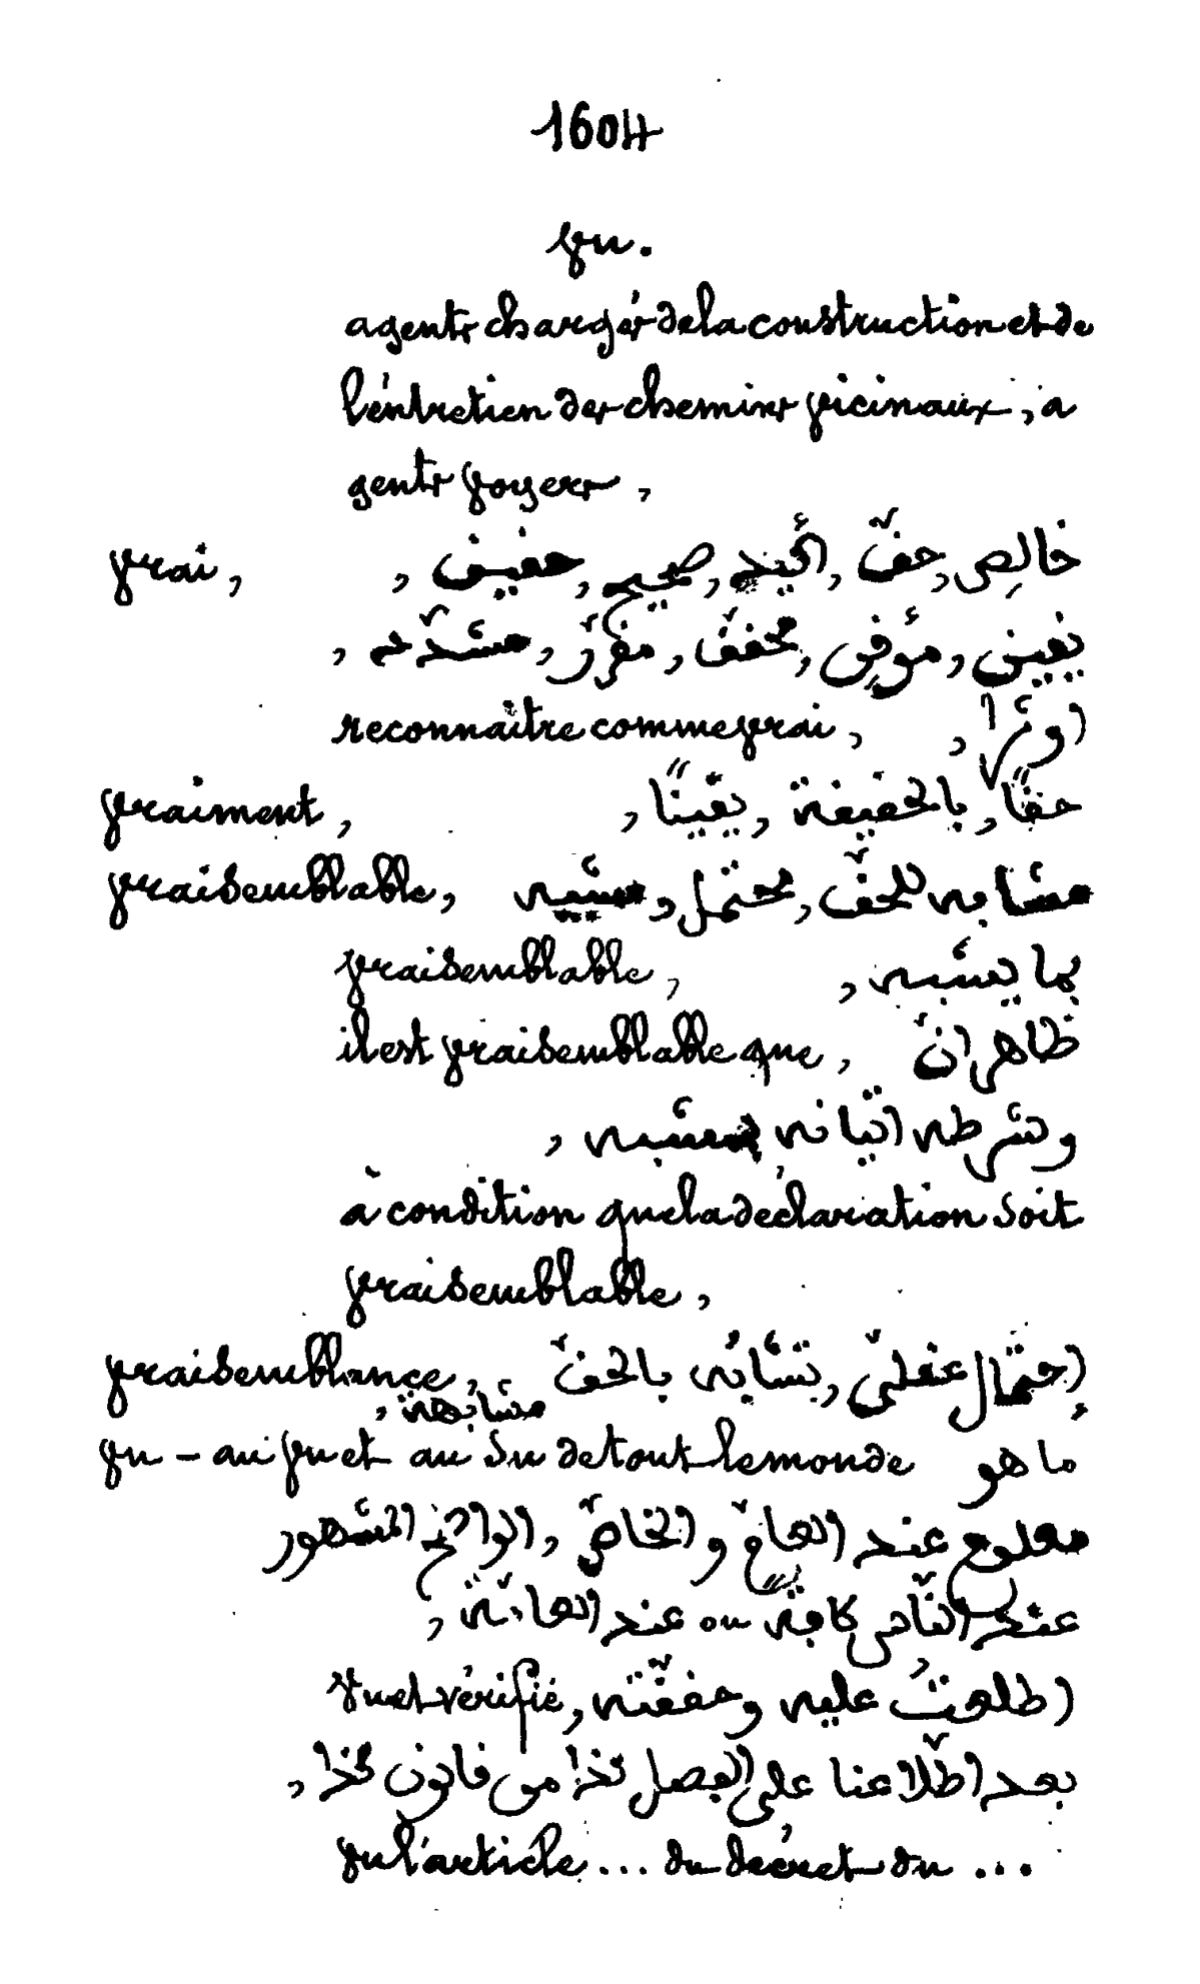 1604
vu.
agents chargés de la construction et de
l'entretien des chemins vicinaux, a
gents voyers,
vrai, خالص, حقّ, أكيد, صحيح, حقيقي,
يقيني, مؤفق, محقق, مقرّر, مشدّد,
reconnaître comme vrai, اوثرا,
vraiment, حقًّا, بالحقيقة, يقينًا,
vraisemblable, مشابه للحقّ, محتمل, شبيه
vraisemblable, بما يشبه,
il est vraisemblable que, ظاهر انّ
وشرطه اتيانه بمشبه,
à condition que la déclaration soit
vraisemblable,
vraisemblance, إحتمال عقلي, تشابُه بالحقّ
مشابهة,
vu - au vu et au su de tout le monde ما هو
معلوم عند العامّ والخاصّ, الواضح المشهور
عند الناس كافّة ou عند العامّة,
vu et vérifié, اطلعتُ عليه وحققته
بعد اطّلاعنا على الفصل كذا من قانون كذا,
vu l'article ... du décret du ...